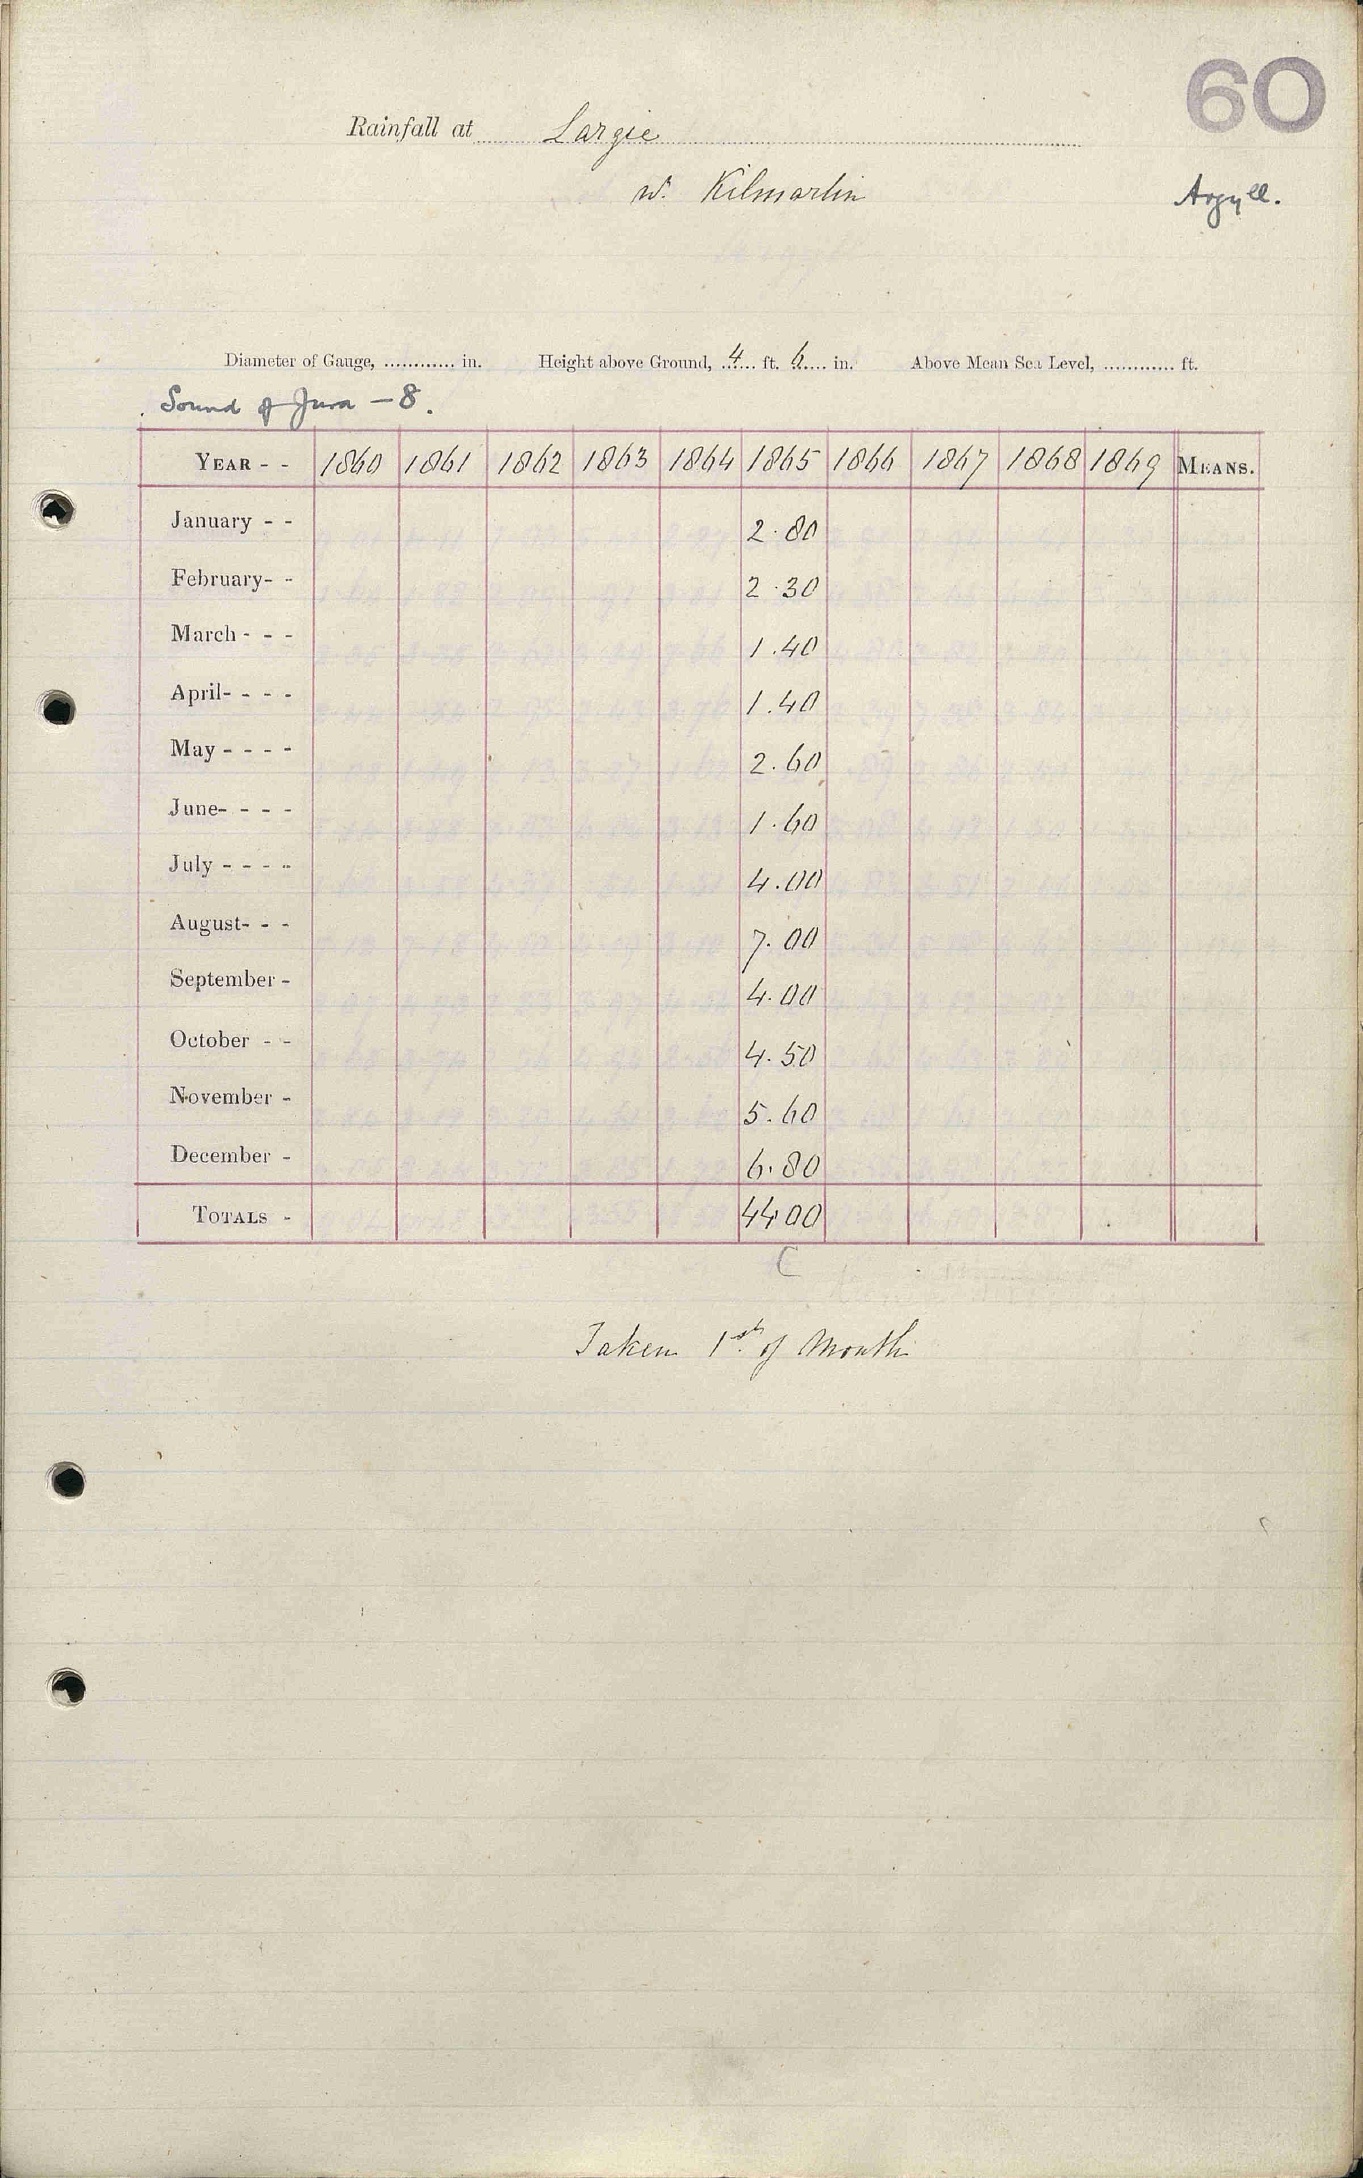 60
Rainfall at Largie
nr. Kilmartin
Argyll.
Diameter of Gauge, ............ in. Height above Ground, 4 ft. 6 in. Above Mean Sea Level, ............ ft.
Sound of Jura - 8.
YEAR - - 1860 1861 1862 1863 1864 1865 1866 1867 1868 1869 MEANS.
January - - 2.80
February- - 2.30
March - - - 1.40
April- - - - 1.40
May - - - - 2.60
June- - - - 1.60
July - - - - 4.00
August- - - 7.00
September - 4.00
October - - 4.50
November - 5.60
December - 6.80
TOTALS - 44.00
C
Taken 1st of Month